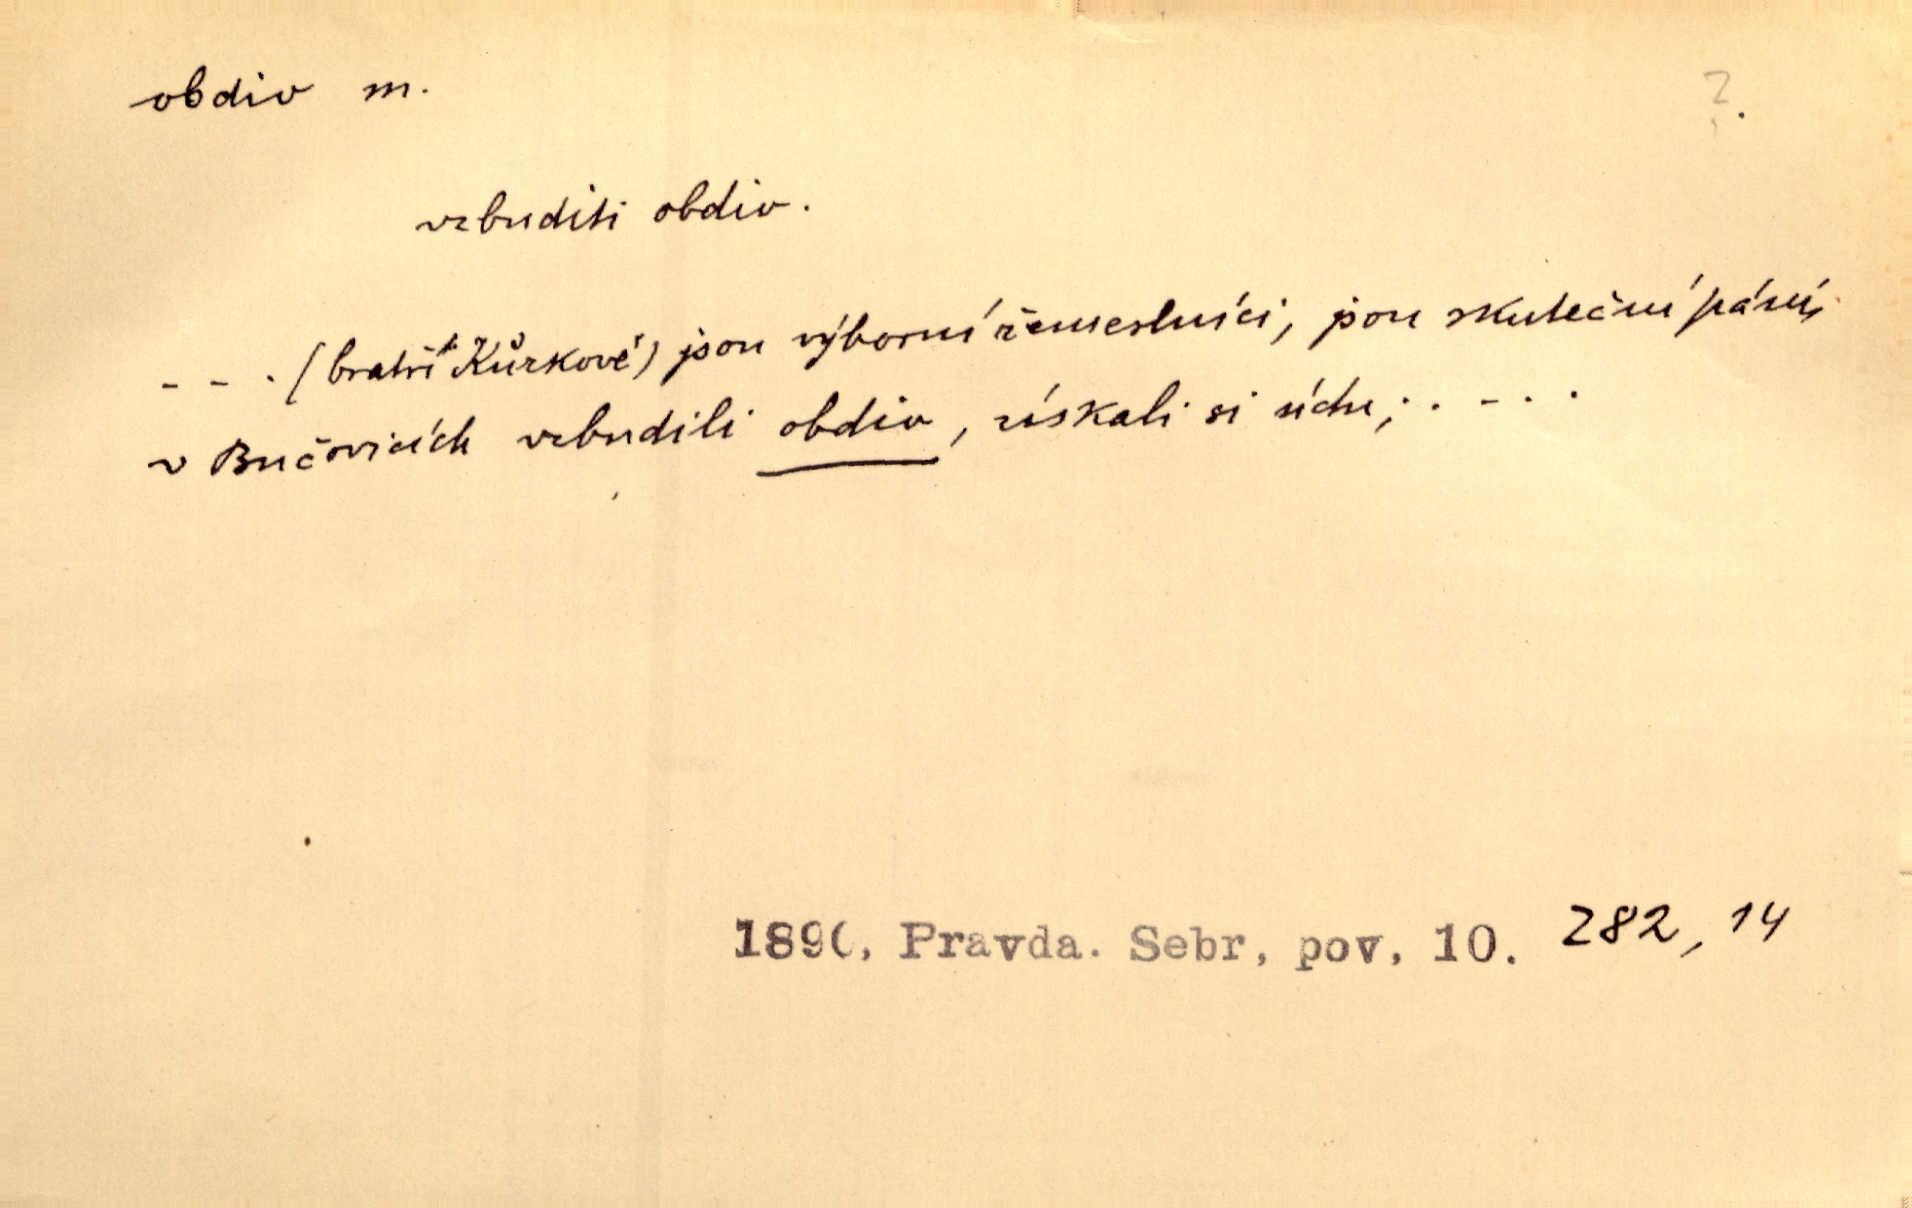 obdiv m. ?.
vzbuditi obdiv.
- - . (bratři Kůrkové) jsou výborní řemeslníci, jsou skuteční páni,
v Bučovicích vzbudili obdiv, získali si úctu; . - . .
1890, Pravda. Sebr, pov, 10. 282, 14